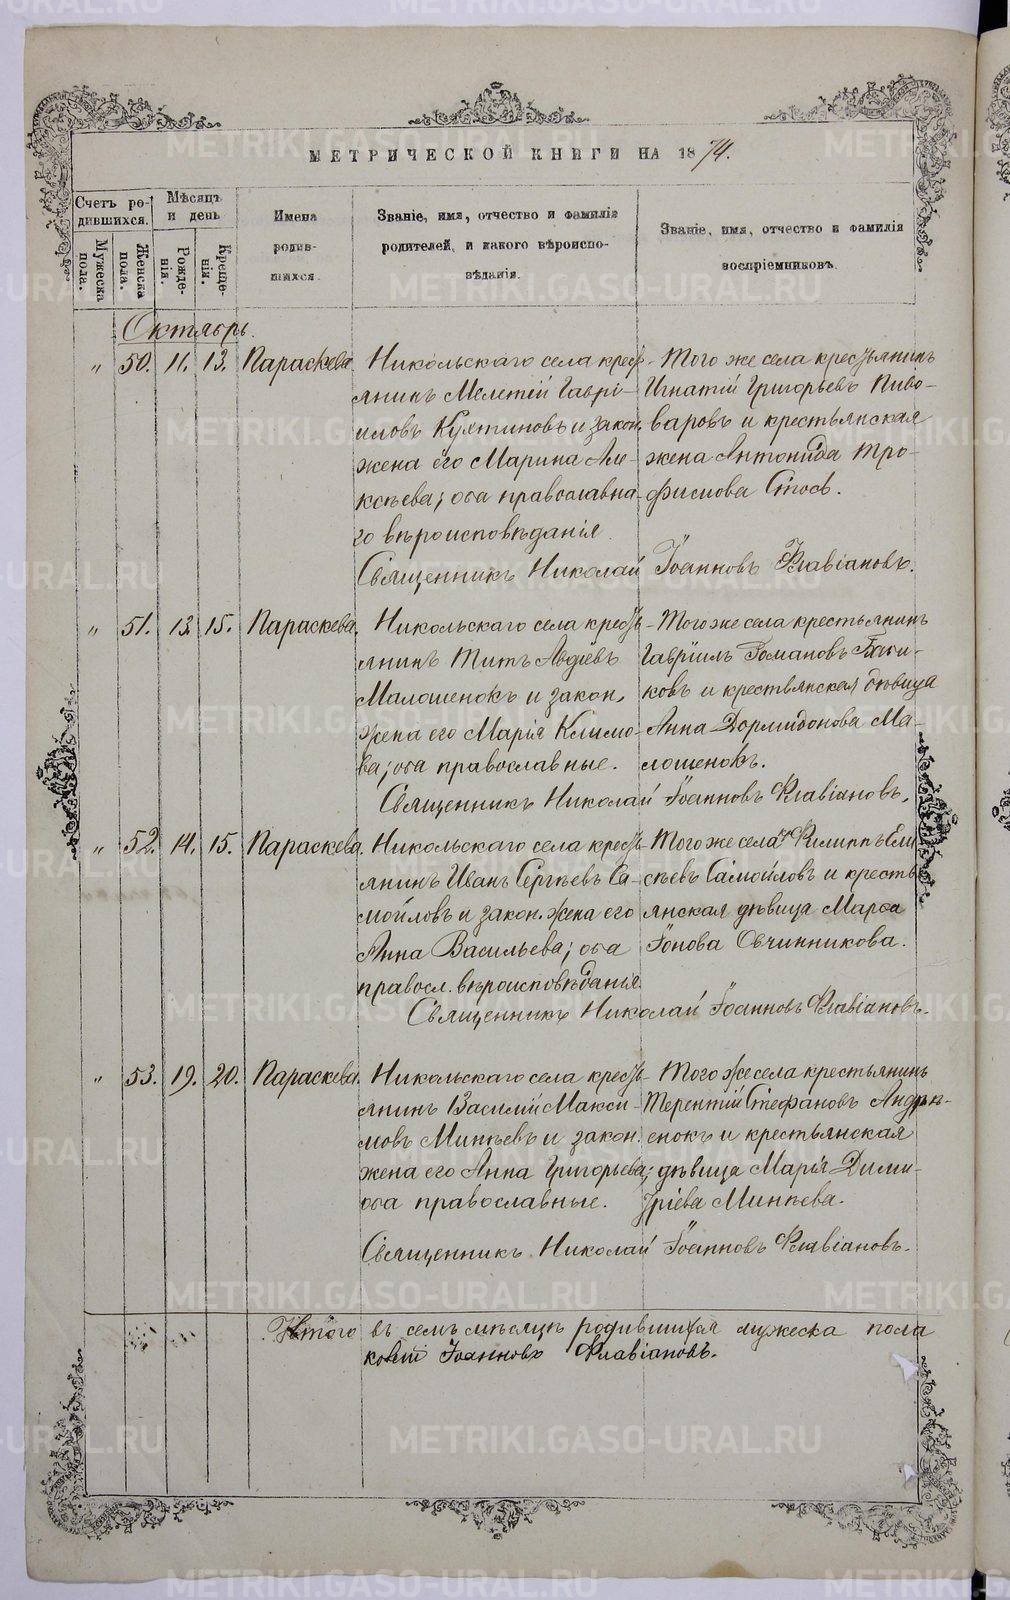 МЕТРИЧЕСКОЙ КНИГИ НА 1874.
Счетъ родившихся.
Мужеска пола.
Женска пола.
Мѣсяцъ и день
Рожденiя.
Крещенiя.
Имена родившихся.
Званiе, имя, отчество и фамилiя родителей, и какого вѣроисповѣданiя.
Званiе, имя, отчество и фамилiя воспрiемниковъ.
Октябрь.
" 50. 11. 13. Параскева.
Никольскаго села кресть-
янинъ Мелетiй Гаврi-
иловъ Кухтиновъ и закон.
жена его Марина Але-
ксѣева; оба православна-
го вѣроисповѣданiя.
Того же села крестьянинъ
Игнатiй Григорьевъ Пиво-
варовъ и крестьянская
жена Антонида Тро-
фимова
Священникъ Николай Iоанновъ Флавiановъ.
" 51. 13. 15. Параскева.
Никольскаго села кресть-
янинъ Титъ Авдiевъ
Малошенокъ и закон.
жена его Марiя Климо-
ва; оба православные.
Того же села крестьянинъ
Гаврiилъ Романовъ
ковъ и крестьянская дѣвица
Анна Дормидонова Ма-
лошенокъ.
Священникъ Николай Iоанновъ Флавiановъ.
" 52. 14. 15. Параскева.
Никольскаго села кресть-
янинъ Иванъ Сергѣевъ Са-
мойловъ и закон. жена его
Анна Васильева; оба
правосл. вѣроисповѣданiя.
Того же села Филиппъ Ели
сѣевъ Самойловъ и кресть
янская дѣвица Марѳа
Iонова Овчинникова.
Священникъ Николай Iоанновъ Флавiановъ.
" 53. 19. 20. Параскева.
Никольскаго села кресть-
янинъ Василiй Макси-
мовъ Минѣевъ и закон.
жена его Анна Григорьева;
оба православные.
Того же села крестьянинъ
Терентiй Стефановъ Андрю-
енокъ и крестьянская
дѣвица Марiя Дими-
трiева Минѣева.
Священникъ Николай Iоанновъ Флавiановъ.
Итого въ семъ мѣсяцѣ родившихся мужеска пола
колай Iоанновъ Флавiановъ.
METRIKI.GASO-URAL.RU